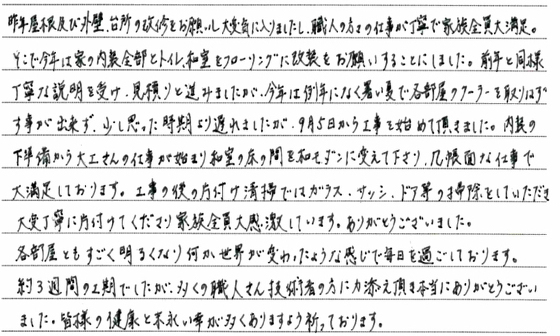 昨年屋根及び外壁、台所の改修をお願いし大変気に入りましたし、職人の方々の仕事が丁寧で家族全員大満足。
そこで今年は家の内装全部とトイレ、和室をフローリングに改装をお願いすることにしました。前年と同様
丁寧な説明を受け、見積りと進みましたが、今年は例年になく暑い夏で各部屋のクーラーを取りはず
す事が出来ず、少し思った時期より遅れましたが、9月5日から工事を始めて頂きました。内装の
下準備から大工さんの仕事が始まり和室の床の間を和モダンに変えて下さり、几帳面な仕事で
大満足しております。工事の後の片付け清掃ではガラス、サッシ、ドア等の掃除をしていただき
大変丁寧に片付けてくださり家族全員大感激しています。ありがとうございました。
各部屋ともすごく明るくなり何か世界が変わったような感じで毎日を過ごしております。
約3週間の工期でしたが、多くの職人さん技術者の方に力添え頂き本当にありがとうござい
ました。皆様の健康と末永い幸が多くありますよう祈っております。